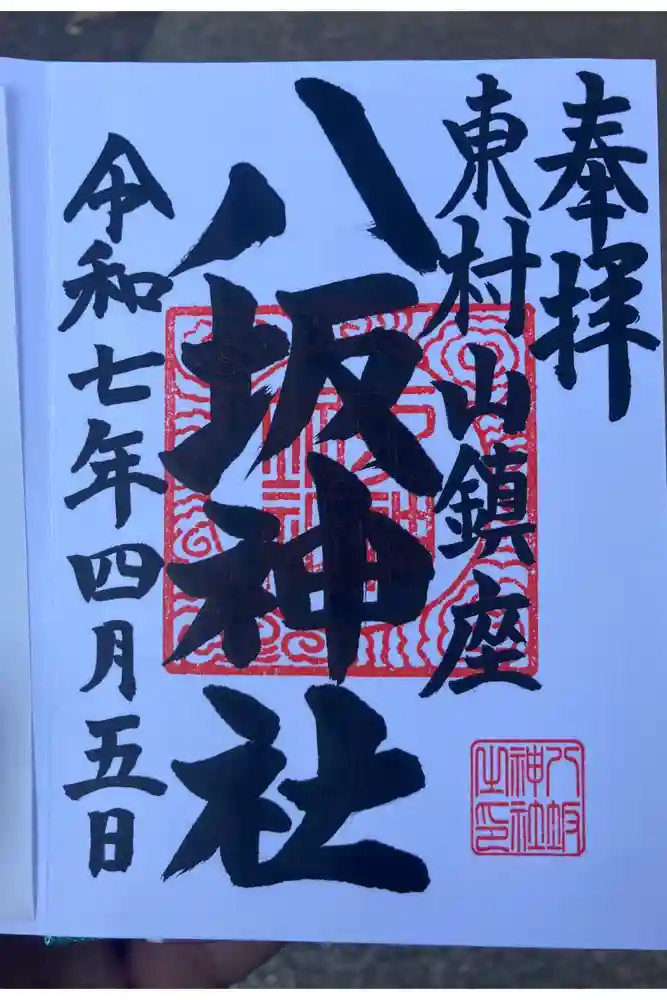 奉拝
東村山鎮座
八坂神社
令和七年四月五日
八坂
神社
之印